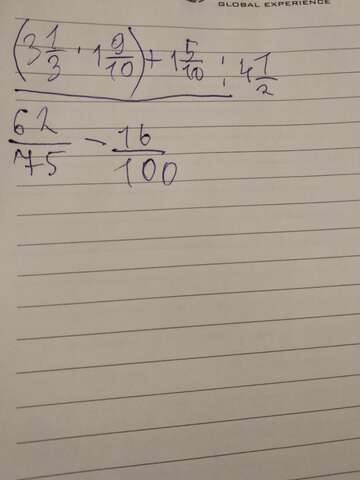 GLOBAL EXPERIENCE
(3 1/3 · 1 9/10) + 1 5/10 : 4 1/2
62/75 - 16/100